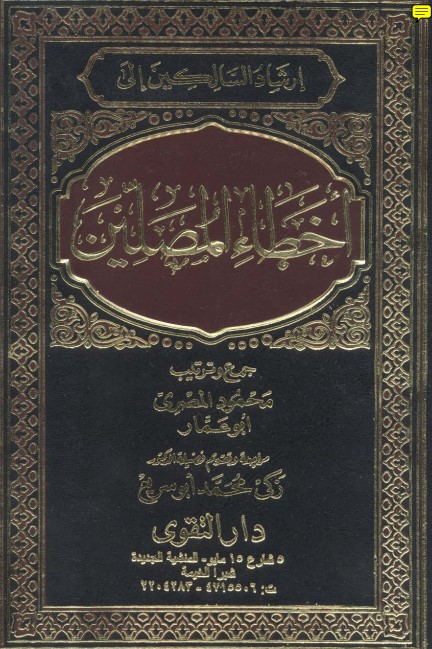 إرشاد السالكين إلى
أخطاء المصلين
جمع وترتيب
محمود المصرى
أبو عمار
مراجعة وتقديم فضيلة الدكتور
زكى محمد أبو سريع
دار التقوى
٥ شارع ١٥ مايو - المنشية الجديدة
شبرا الخيمة
ت: ٤٧١٥٥٠٦ - ٢٢٠٤٢٨٣